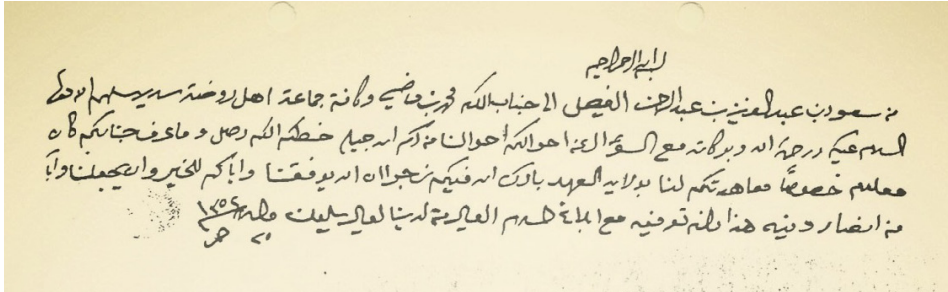 بسم الله الرحمن الرحيم
من سعود بن عبدالعزيز بن عبدالرحمن الفيصل الى جناب المكرم محمد بن ماضي وكافة جماعة اهل روضة سدير سلمهم الله تعالى
السلام عليكم ورحمة الله وبركاته مع السؤال عن احوالكم احوالنا من كرم الله جميله خطكم المكرم وصل وما عرف جنابكم كان
معلوم خصوصاً معاهدتكم لنا بولاية العهد بارك الله فيكم نرجوا الله ان يوفقنا واياكم للخير وان يجعلنا واياكم
من انصار دينه هذا مالزم تعريفه مع ابلاغ السلام العيال ومن لدينا العيال يسلمون والسلام ١٣٥٢
٢٥ محرم